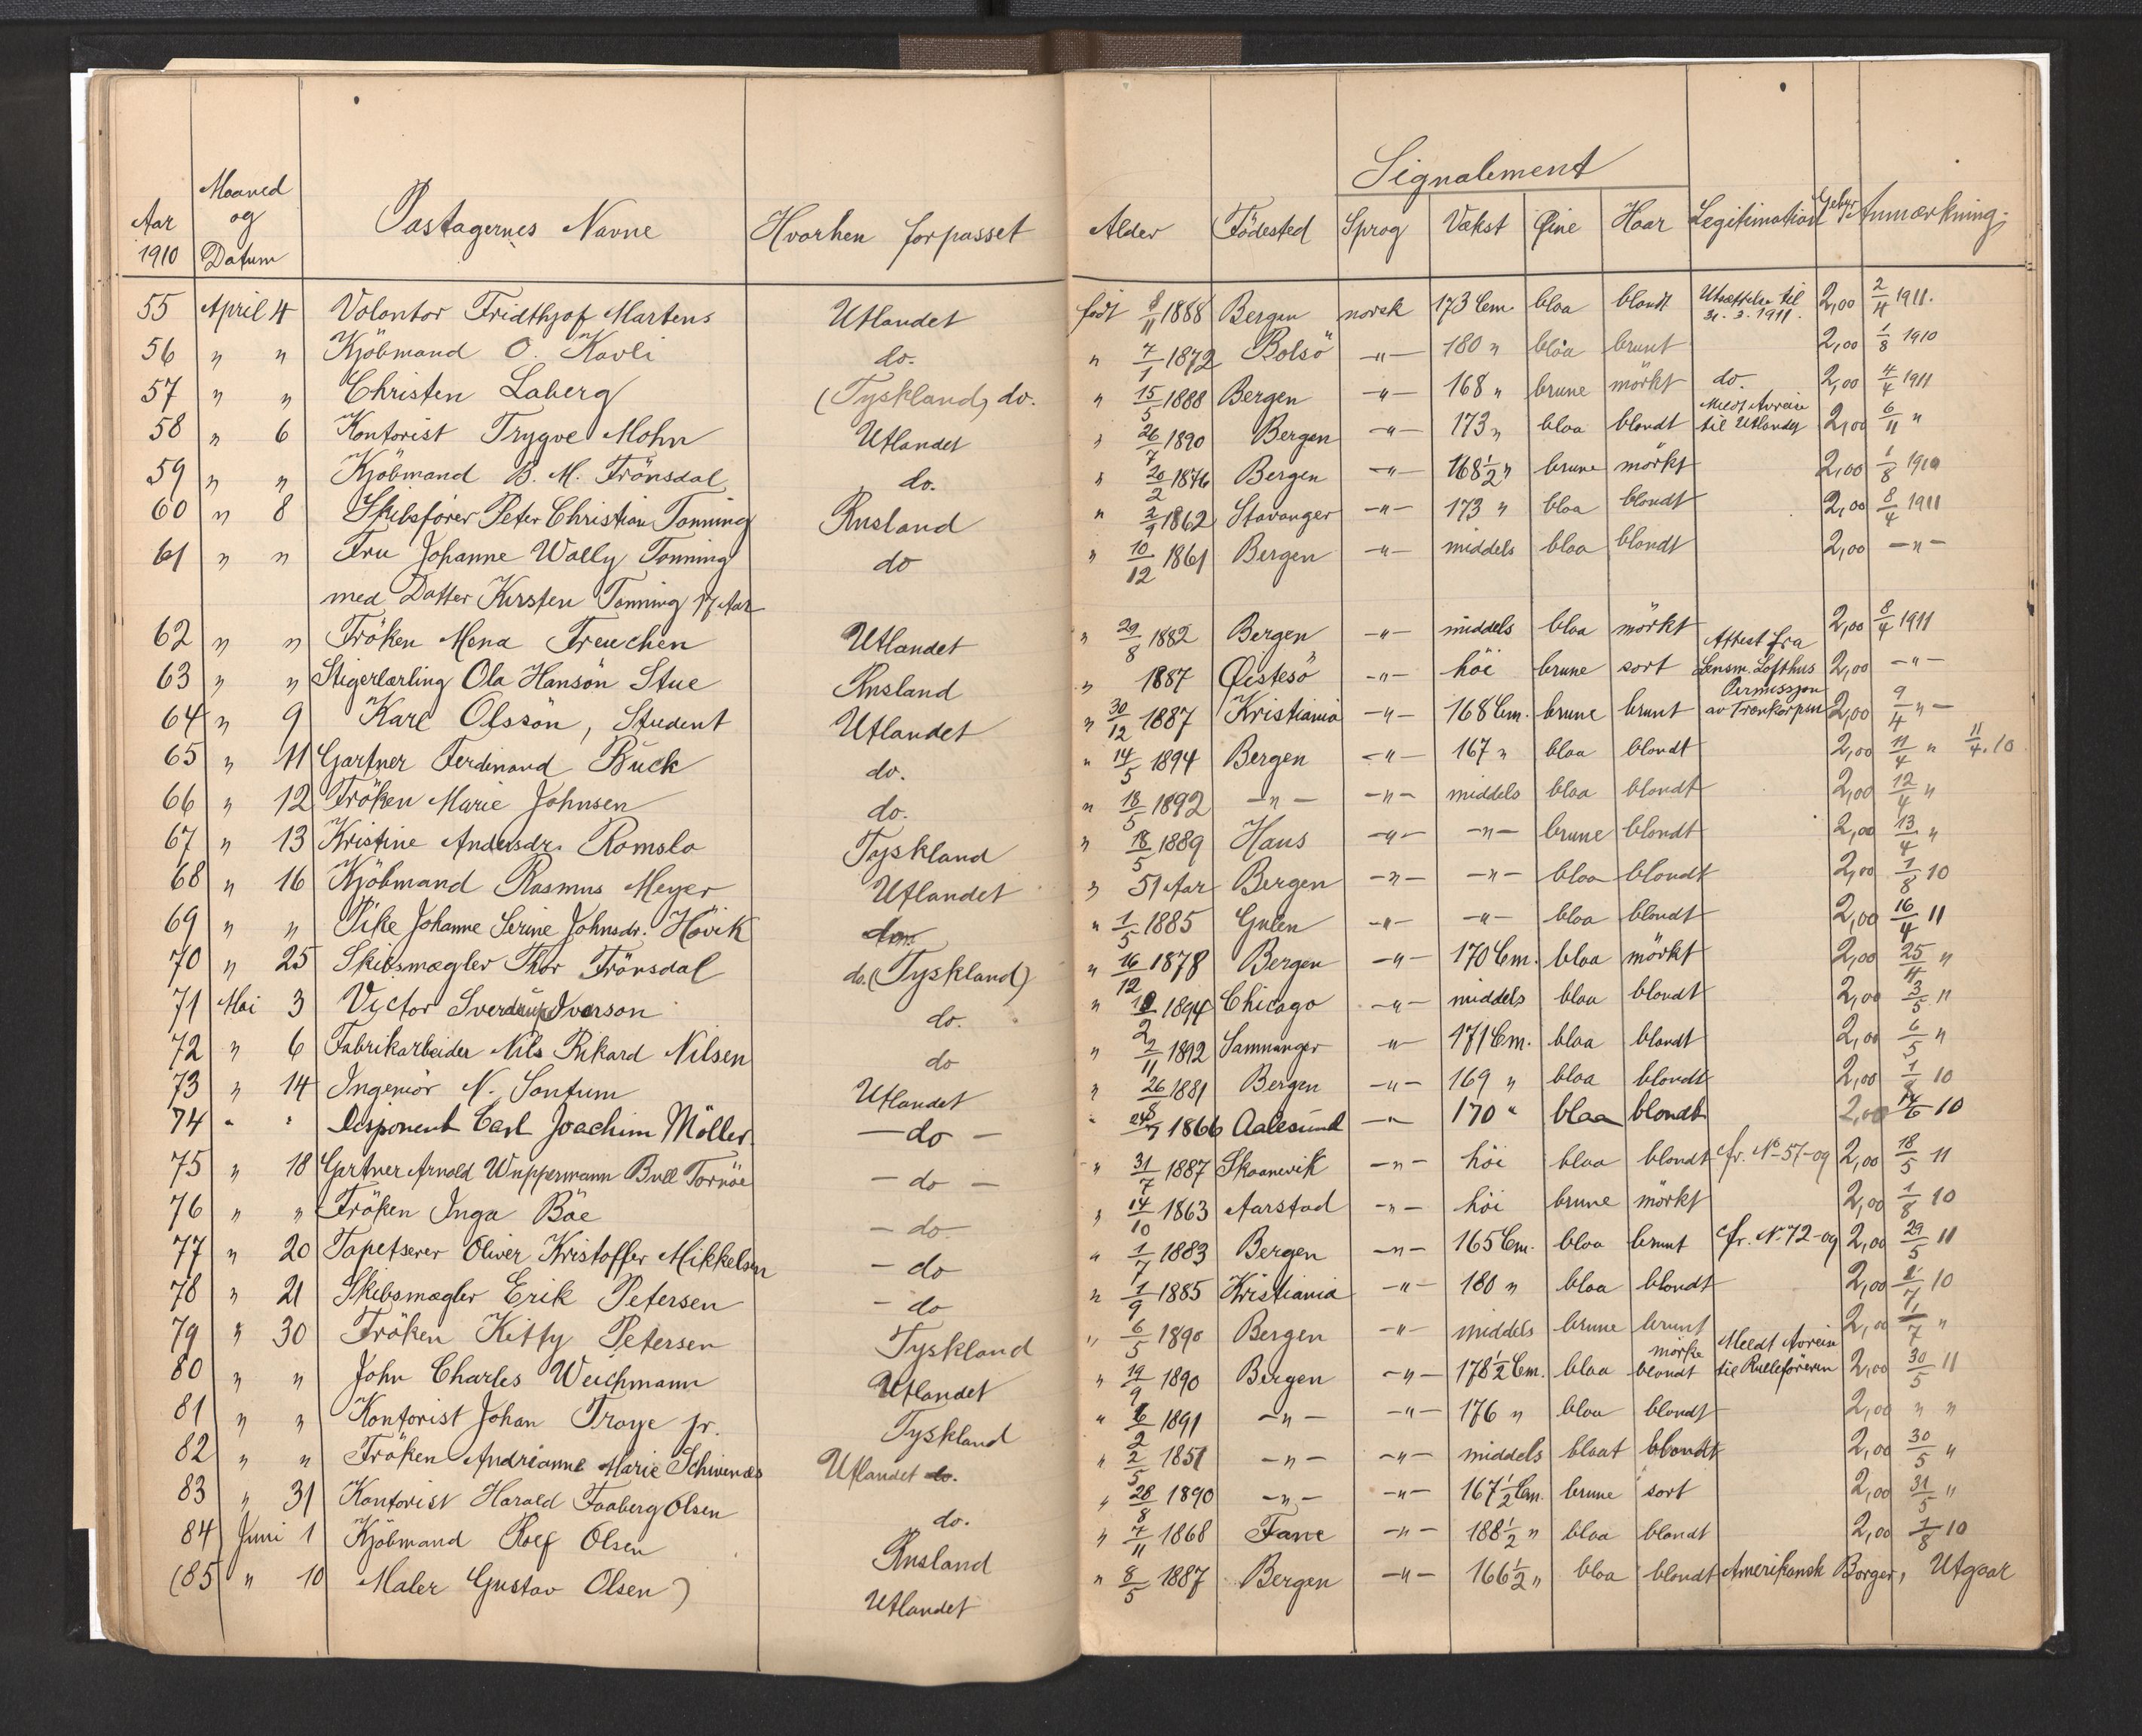 Signalement
Aar 1910 Maaned og Datum Pastagernes Navne Hvorhen forpasset Alder Födested Sprog Vækst Øine Haar Legitimation Gebyr Anmærkning.
55 April 4 Volontør Fridthjof Martens Utlandet født 8/11 1888 Bergen norsk 173 Cm. blaa blondt Utsættelse til 31.3.1911. 2,00 2/4 1911.
56 " " Kjöbmand O. Kavli do. " 7/1 1872 Bolsö -"- 180 " blaa brunt 2,00 1/8 1910
57 " " Christen Laberg (Tyskland) do. " 15/5 1888 Bergen -"- 168 " brune mörkt do. 2,00 4/4 1911
58 " 6 Kontorist Trygve Mohn Utlandet " 26/7 1890 Bergen -"- 173 " blaa blondt Meldt Avreise til Utlandet 2,00 6/11 "
59 " " Kjöbmand B. M. Frönsdal do. " 20/2 1876 Bergen -"- 168 1/2 " brune mörkt 2,00 1/8 1910
60 " 8 Skibsförer Peter Christian Tonning Rusland " 2/9 1862 Stavanger -"- 173 " blaa blondt 2,00 8/4 1911
61 " " Fru Johanne Wally Tonning do " 10/12 1861 Bergen -"- middels blaa blondt 2,00 -"-
med Datter Kirsten Tonning 17 Aar
62 " " Fröken Mena Freuchen Utlandet " 29/8 1882 Bergen -"- middels blaa mörkt 2,00 8/4 1911
63 " " Stigerlærling Ola Hansön Stue Rusland " 1887 Øistesö -"- höi brune sort Attest fra Lensm. Lofthus 2,00 -"-
64 " 9 Karl Olssön, Student Utlandet " 30/12 1887 Kristiania -"- 168 Cm. brune brunt Permission av Trænkorpset 2,00 9/4 "-
65 " 11 Gartner Ferdinand Bück do. " 14/5 1894 Bergen -"- 167 " blaa blondt 2,00 11/4 " 11/4.10
66 " 12 Fröken Marie Johnsen do. " 18/5 1892 -"- -"- middels blaa blondt 2,00 12/4 "
67 " 13 Kristine Andersdr. Romslo Tyskland " 18/5 1889 Haus -"- -"- brune blondt 2,00 13/4 "
68 " 16 Kjöbmand Rasmus Meyer Utlandet " 51 Aar Bergen -"- -"- blaa blondt 2,00 1/8 10
69 " " Pike Johanne Serine Johnsdr. Hövik do. " 1/5 1885 Gulen -"- -"- blaa blondt 2,00 16/4 11
70 " 25 Skibsmægler Thor Frönsdal do. (Tyskland) " 16/12 1878 Bergen -"- 170 Cm. blaa mörkt 2,00 25/4 "
71 Mai 3 Victor Sverdrup Iverson do. " 10/2 1894 Chicago -"- middels blaa blondt 2,00 3/5 11
72 " 6 Fabrikarbeider Nils Rikard Nilsen do " 2/11 1892 Samnanger -"- 171 Cm. blaa blondt 2,00 6/5 "
73 " 14 Ingeniör N. Sontum Utlandet " 26/8 1881 Bergen -"- 169 " blaa blondt 2,00 1/8 10
74 " " Disponent Carl Joachim Möller -do- " 24/7 1866 Aalesund -"- 170 " blaa blondt 2,00 14/6 10
75 " 18 Gartner Arnold Wuppermann Bull Tornöe -do- " 31/7 1887 Skaanevik -"- höi blaa blondt cfr. No 57-09 2,00 18/5 11
76 " " Fröken Inga Böe -do- " 14/10 1863 Aarstad -"- höi brune mörkt 2,00 1/8 10
77 " 20 Tapetserer Oliver Kristoffer Mikkelsen -do " 1/7 1883 Bergen -"- 165 Cm. blaa brunt cfr. N. 72-09 2,00 29/5 11
78 " 21 Skibsmægler Erik Petersen -do " 1/9 1885 Kristiania -"- 180 " blaa blondt 2,00 1/7 10
79 " 30 Fröken Kitty Petersen Tyskland " 6/5 1890 Bergen -"- middels brune brunt 2,00 1/7 "
80 " " John Charles Weichmann Utlandet " 19/9 1890 Bergen -"- 178 1/2 Cm. blaa mörke blondt Meldt Avreise til Rulleföreren 2,00 30/5 11
81 " " Kontorist Johan Troye jr. Tyskland " 6/2 1891 -"- -"- 176 " blaa blondt 2,00 " "
82 " " Fröken Andrianne Marie Schwenæs Utlandet do. " 2/5 1851 -"- -"- middels blaat blondt 2,00 30/5 "
83 " 31 Kontorist Harald Faaberg Olsen do. " 28/8 1890 -"- -"- 167 1/2 Cm. brune sort 2,00 31/5 "
84 Juni 1 Kjöbmand Rolf Olsen Rusland " 7/11 1868 Fane -"- 188 1/2 " blaa blondt 2,00 1/8 10
(85 " 10 Maler Gustav Olsen) Utlandet " 8/5 1887 Bergen -"- 166 1/2 " blaa blondt Amerikansk Borger, Utgaar